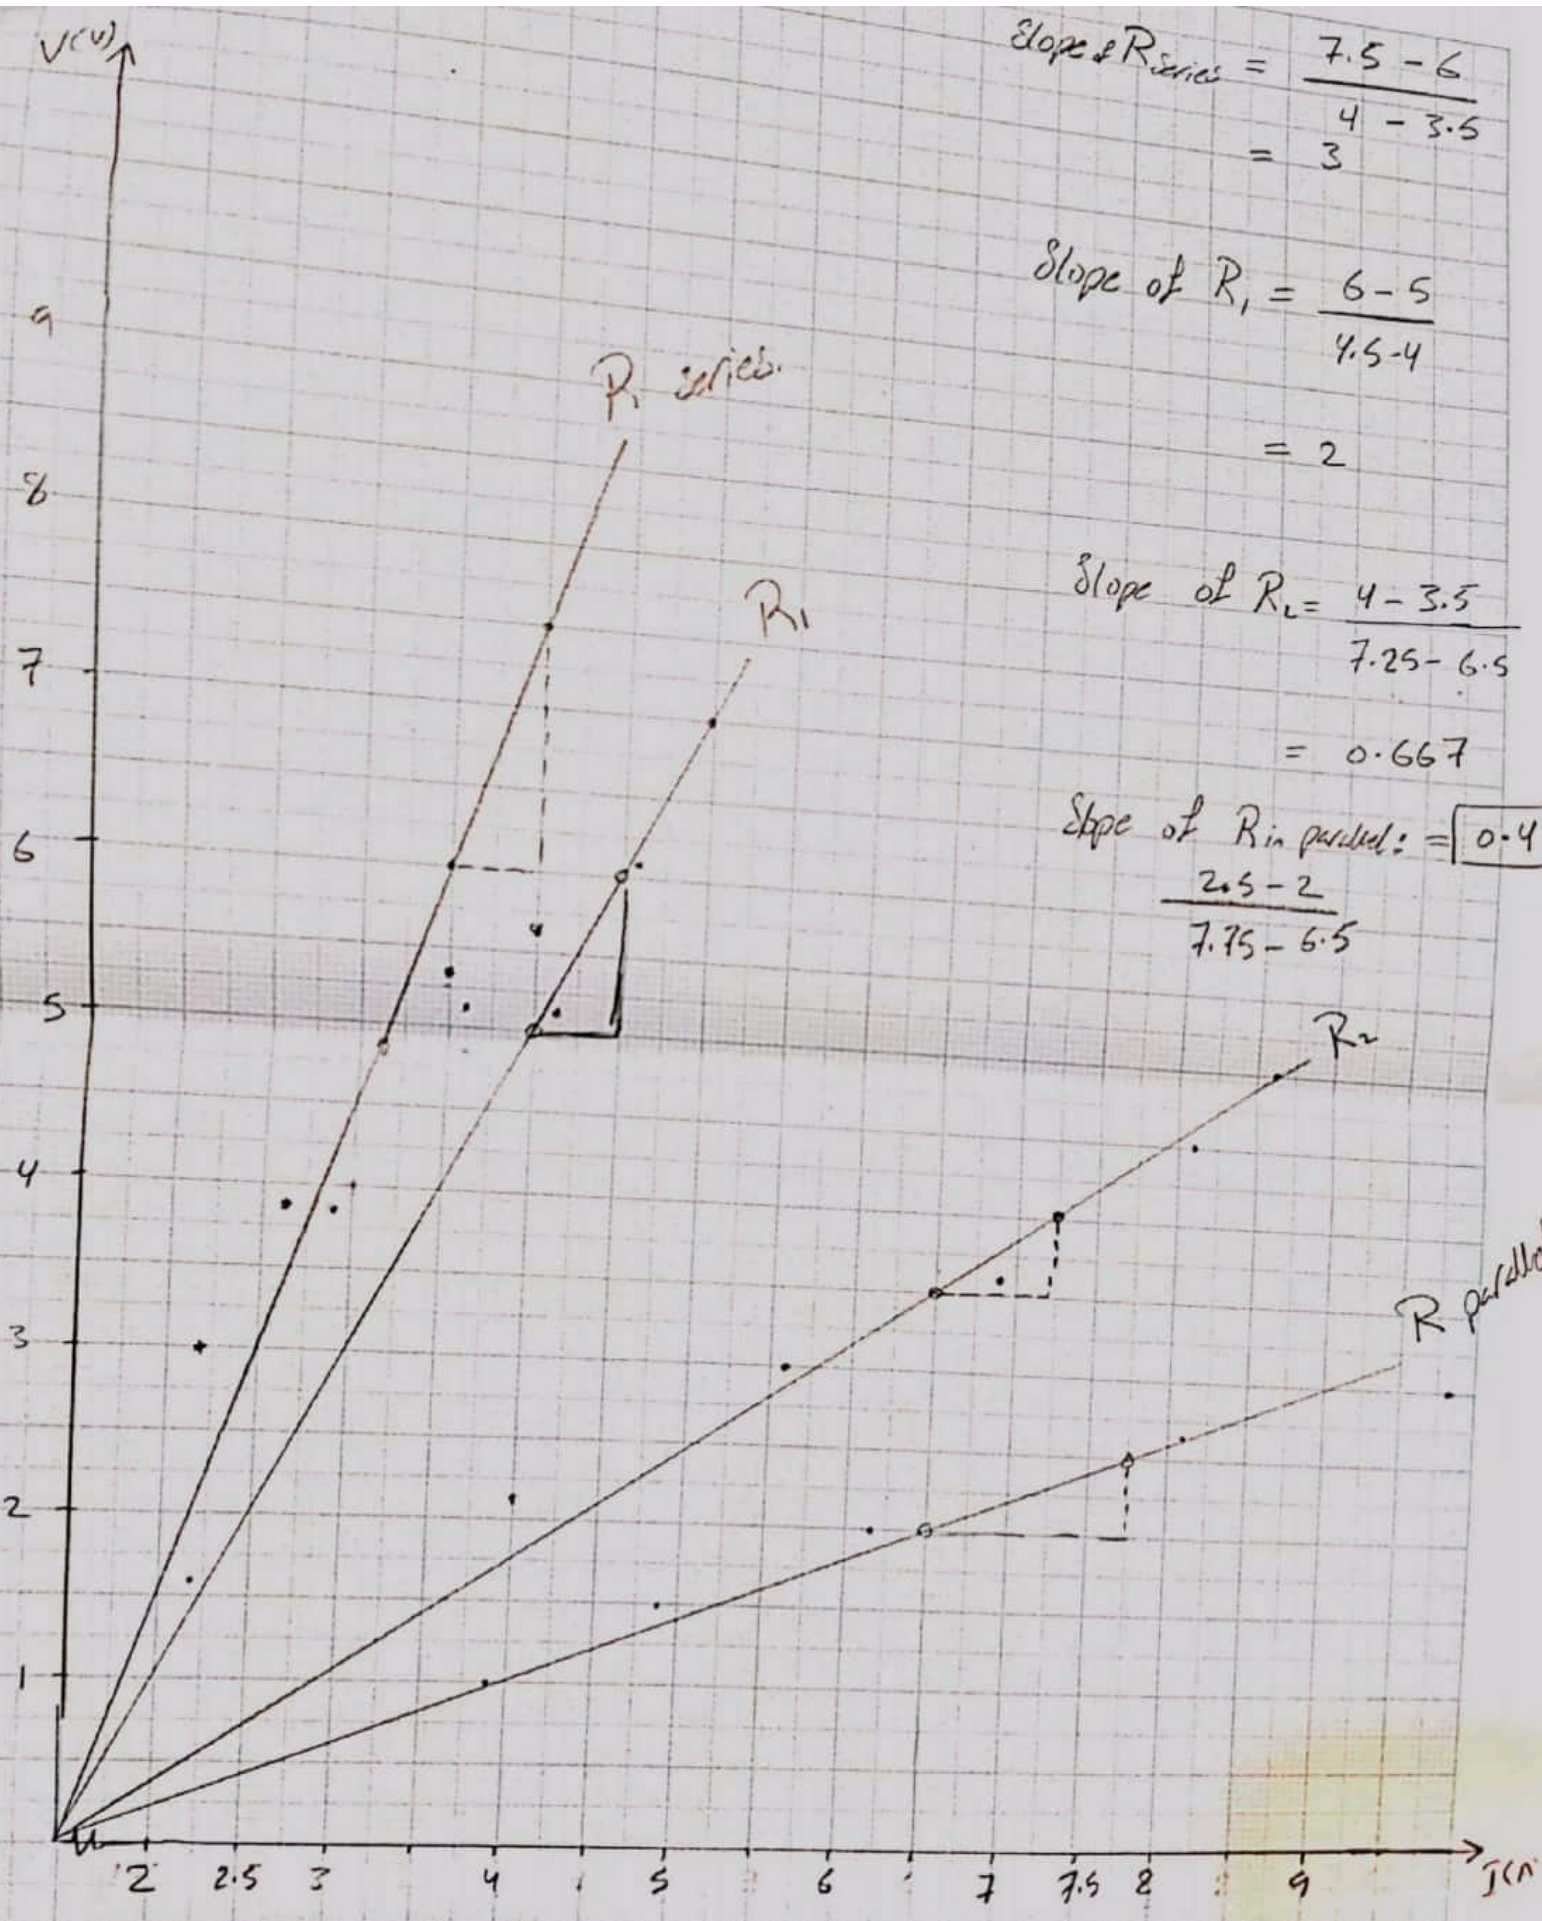 V(v)
Slope of R series = 7.5 - 6
4 - 3.5
= 3
Slope of R₁ = 6 - 5
4.5 - 4
= 2
Slope of R₂ = 4 - 3.5
7.25 - 6.5
= 0.667
Slope of R in parallel: = 0.4
2.5 - 2
7.75 - 6.5
R series.
R₁
R₂
R
9
8
7
6
5
4
3
2
1
2 2.5 3 4 5 6 7 7.5 8 9